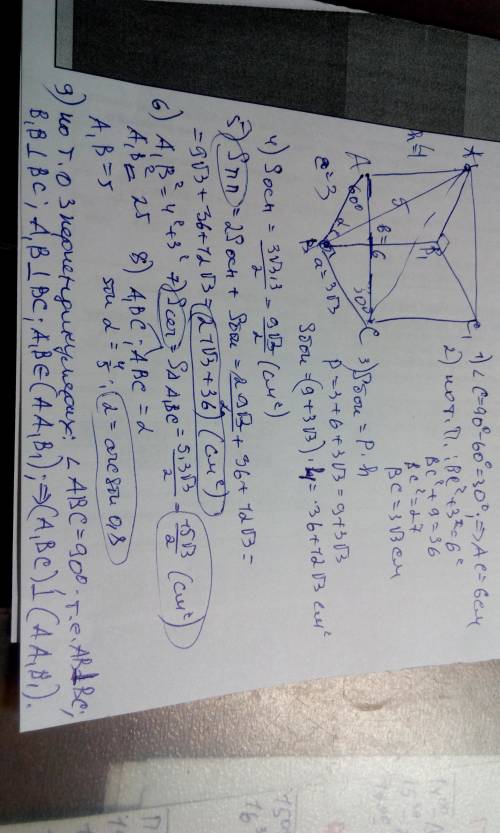 A₁
C₁
B₁
h=4
5
A
60°
b=6
30°
C
c=3
α
B
a=3√3
1) ∠C=90°-60°=30°, ⇒ AC=6см
2) по т. П.: BC²+3²=6²
BC²+9=36
BC²=27
BC=3√3 см
3) Sбок = P·h
P=3+6+3√3=9+3√3
Sбок=(9+3√3)·4=36+12√3 см²
4) Sосн = 3√3·3/2 = 9√3/2 (см²)
5) Sпп = 2Sосн + Sбок = 2·9√3/2 + 36+12√3 =
= 9√3+36+12√3 = (21√3+36) (см²)
6) A₁B²=4²+3²
A₁B²=25
A₁B=5
7) Sсеч = S△A₁BC = 5·3√3/2 = 15√3/2 (см²)
8) A₁BC; ABC = α
sin α = 4/5; α = arcsin 0,8
9) по т. о 3 перпендикулярах: ∠ABC=90°-т.е. AB⊥BC;
B₁B⊥BC; A₁B⊥BC; A₁B∈(AA₁B₁); ⇒ (A₁BC)⊥(AA₁B₁).